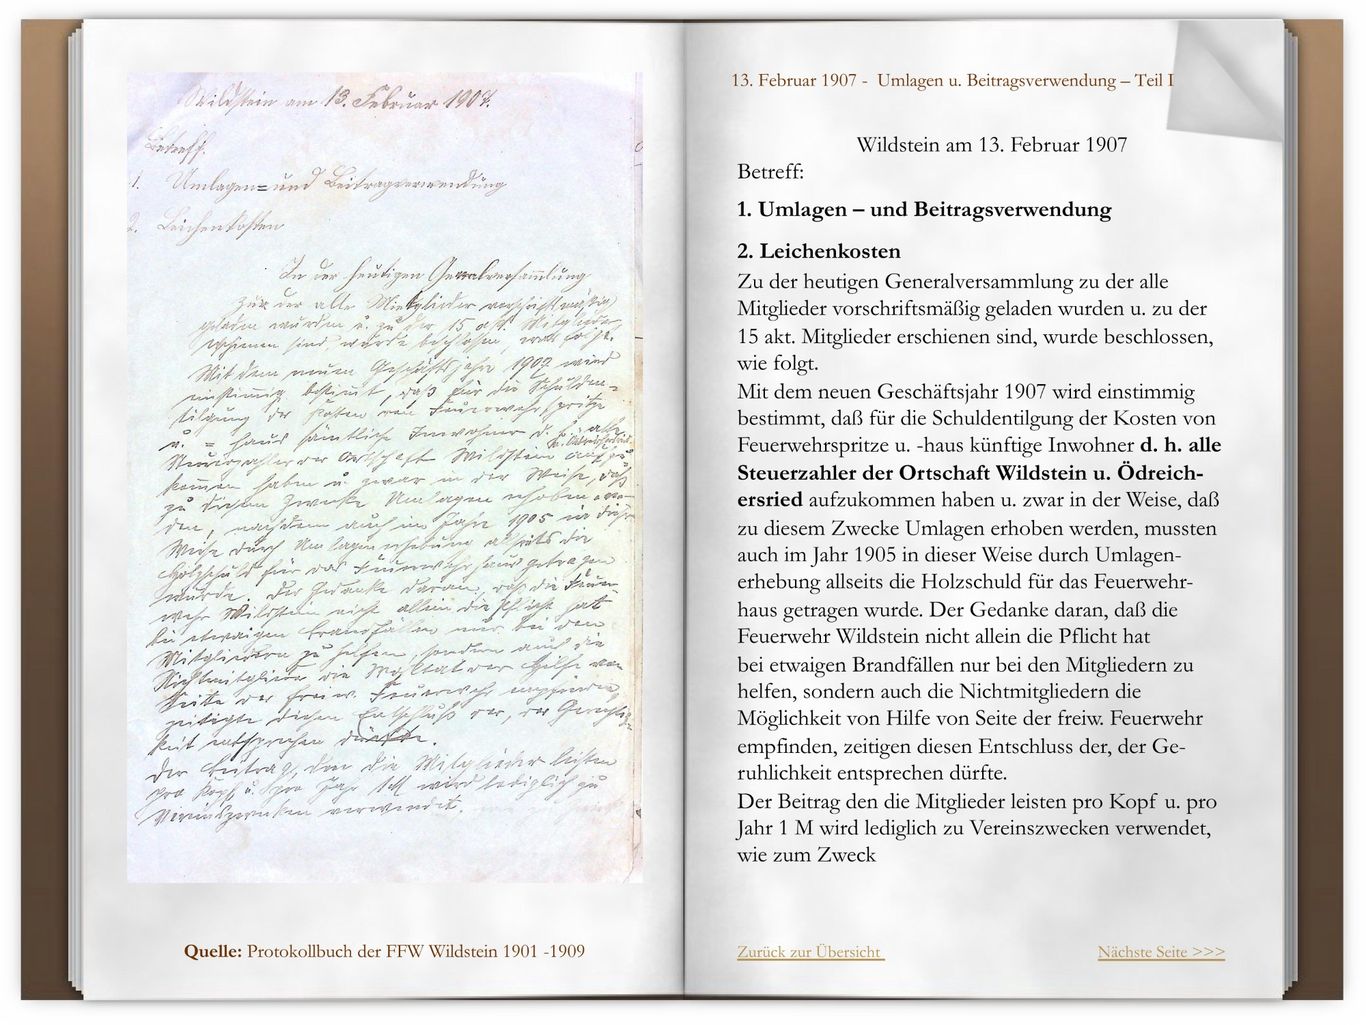 Wildstein am 13. Februar 1907.
Betreff.
1. Umlagen= und Beitragverwendung
2. Leichenkosten
In der heutigen Generalversammlung
zu der alle Mitglieder vorschriftsmäßig
geladen wurden u. zu der 15 akt. Mitglieder
erschienen sind, wurde beschlossen, wie folgt.
Mit dem neuen Geschäftsjahr 1907 wird
einstimmig bestimmt, daß für die Schulden-
tilgung der Kosten von Feuerwehrspritze
u. = haus sämtliche Inwohner d. h. alle
Steuerzahler der Ortschaft Wildstein
kommen haben u. zwar in der Weise, daß
zu diesem Zwecke Umlagen erhoben wer-
den, nachdem auch im Jahre 1905 in dieser
Weise durch Umlagenerhebung allseits die
Holzschuld für das Feuerwehrhaus getragen
wurde. Der Gedanke daran, daß die Feuer-
wehr Wildstein nicht allein die Pflicht hat
bei etwaigen Brandfällen nur bei den
Mitgliedern zu helfen, sondern auch die
Nichtmitglieder die der Hilfe von
Seite der freiw. Feuerwehr empfinden,
zeitigte diesen Entschluß der, der Gerechtig-
keit entsprechen dürfte.
Der Beitrag, den die Mitglieder leisten
pro Kopf u. pro Jahr 1 M wird lediglich zu
Vereinszwecken verwendet.
Quelle: Protokollbuch der FFW Wildstein 1901 -1909
13. Februar 1907 - Umlagen u. Beitragsverwendung – Teil I
Wildstein am 13. Februar 1907
Betreff:
1. Umlagen – und Beitragsverwendung
2. Leichenkosten
Zu der heutigen Generalversammlung zu der alle
Mitglieder vorschriftsmäßig geladen wurden u. zu der
15 akt. Mitglieder erschienen sind, wurde beschlossen,
wie folgt.
Mit dem neuen Geschäftsjahr 1907 wird einstimmig
bestimmt, daß für die Schuldentilgung der Kosten von
Feuerwehrspritze u. -haus künftige Inwohner d. h. alle
Steuerzahler der Ortschaft Wildstein u. Ödreich-
ersried aufzukommen haben u. zwar in der Weise, daß
zu diesem Zwecke Umlagen erhoben werden, mussten
auch im Jahr 1905 in dieser Weise durch Umlagen-
erhebung allseits die Holzschuld für das Feuerwehr-
haus getragen wurde. Der Gedanke daran, daß die
Feuerwehr Wildstein nicht allein die Pflicht hat
bei etwaigen Brandfällen nur bei den Mitgliedern zu
helfen, sondern auch die Nichtmitgliedern die
Möglichkeit von Hilfe von Seite der freiw. Feuerwehr
empfinden, zeitigen diesen Entschluss der, der Ge-
ruhlichkeit entsprechen dürfte.
Der Beitrag den die Mitglieder leisten pro Kopf u. pro
Jahr 1 M wird lediglich zu Vereinszwecken verwendet,
wie zum Zweck
Zurück zur Übersicht
Nächste Seite >>>